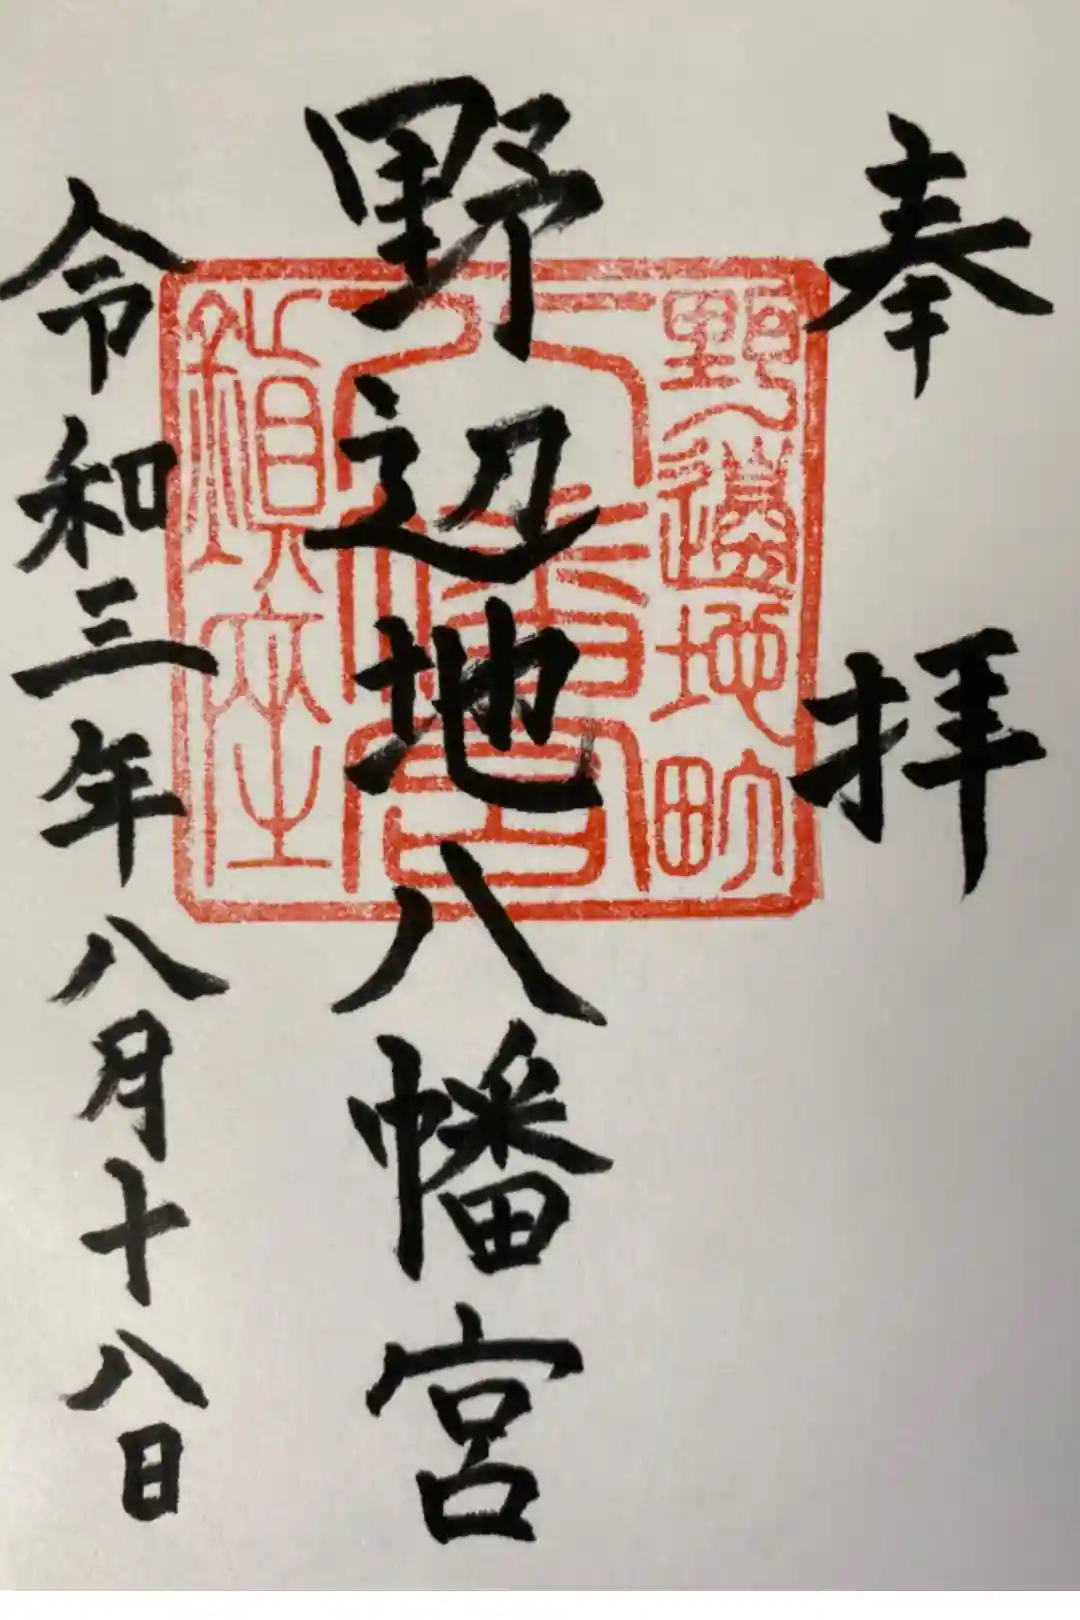 奉拝
野辺地八幡宮
令和三年八月十八日
野邊地町
八幡宮
鎮座